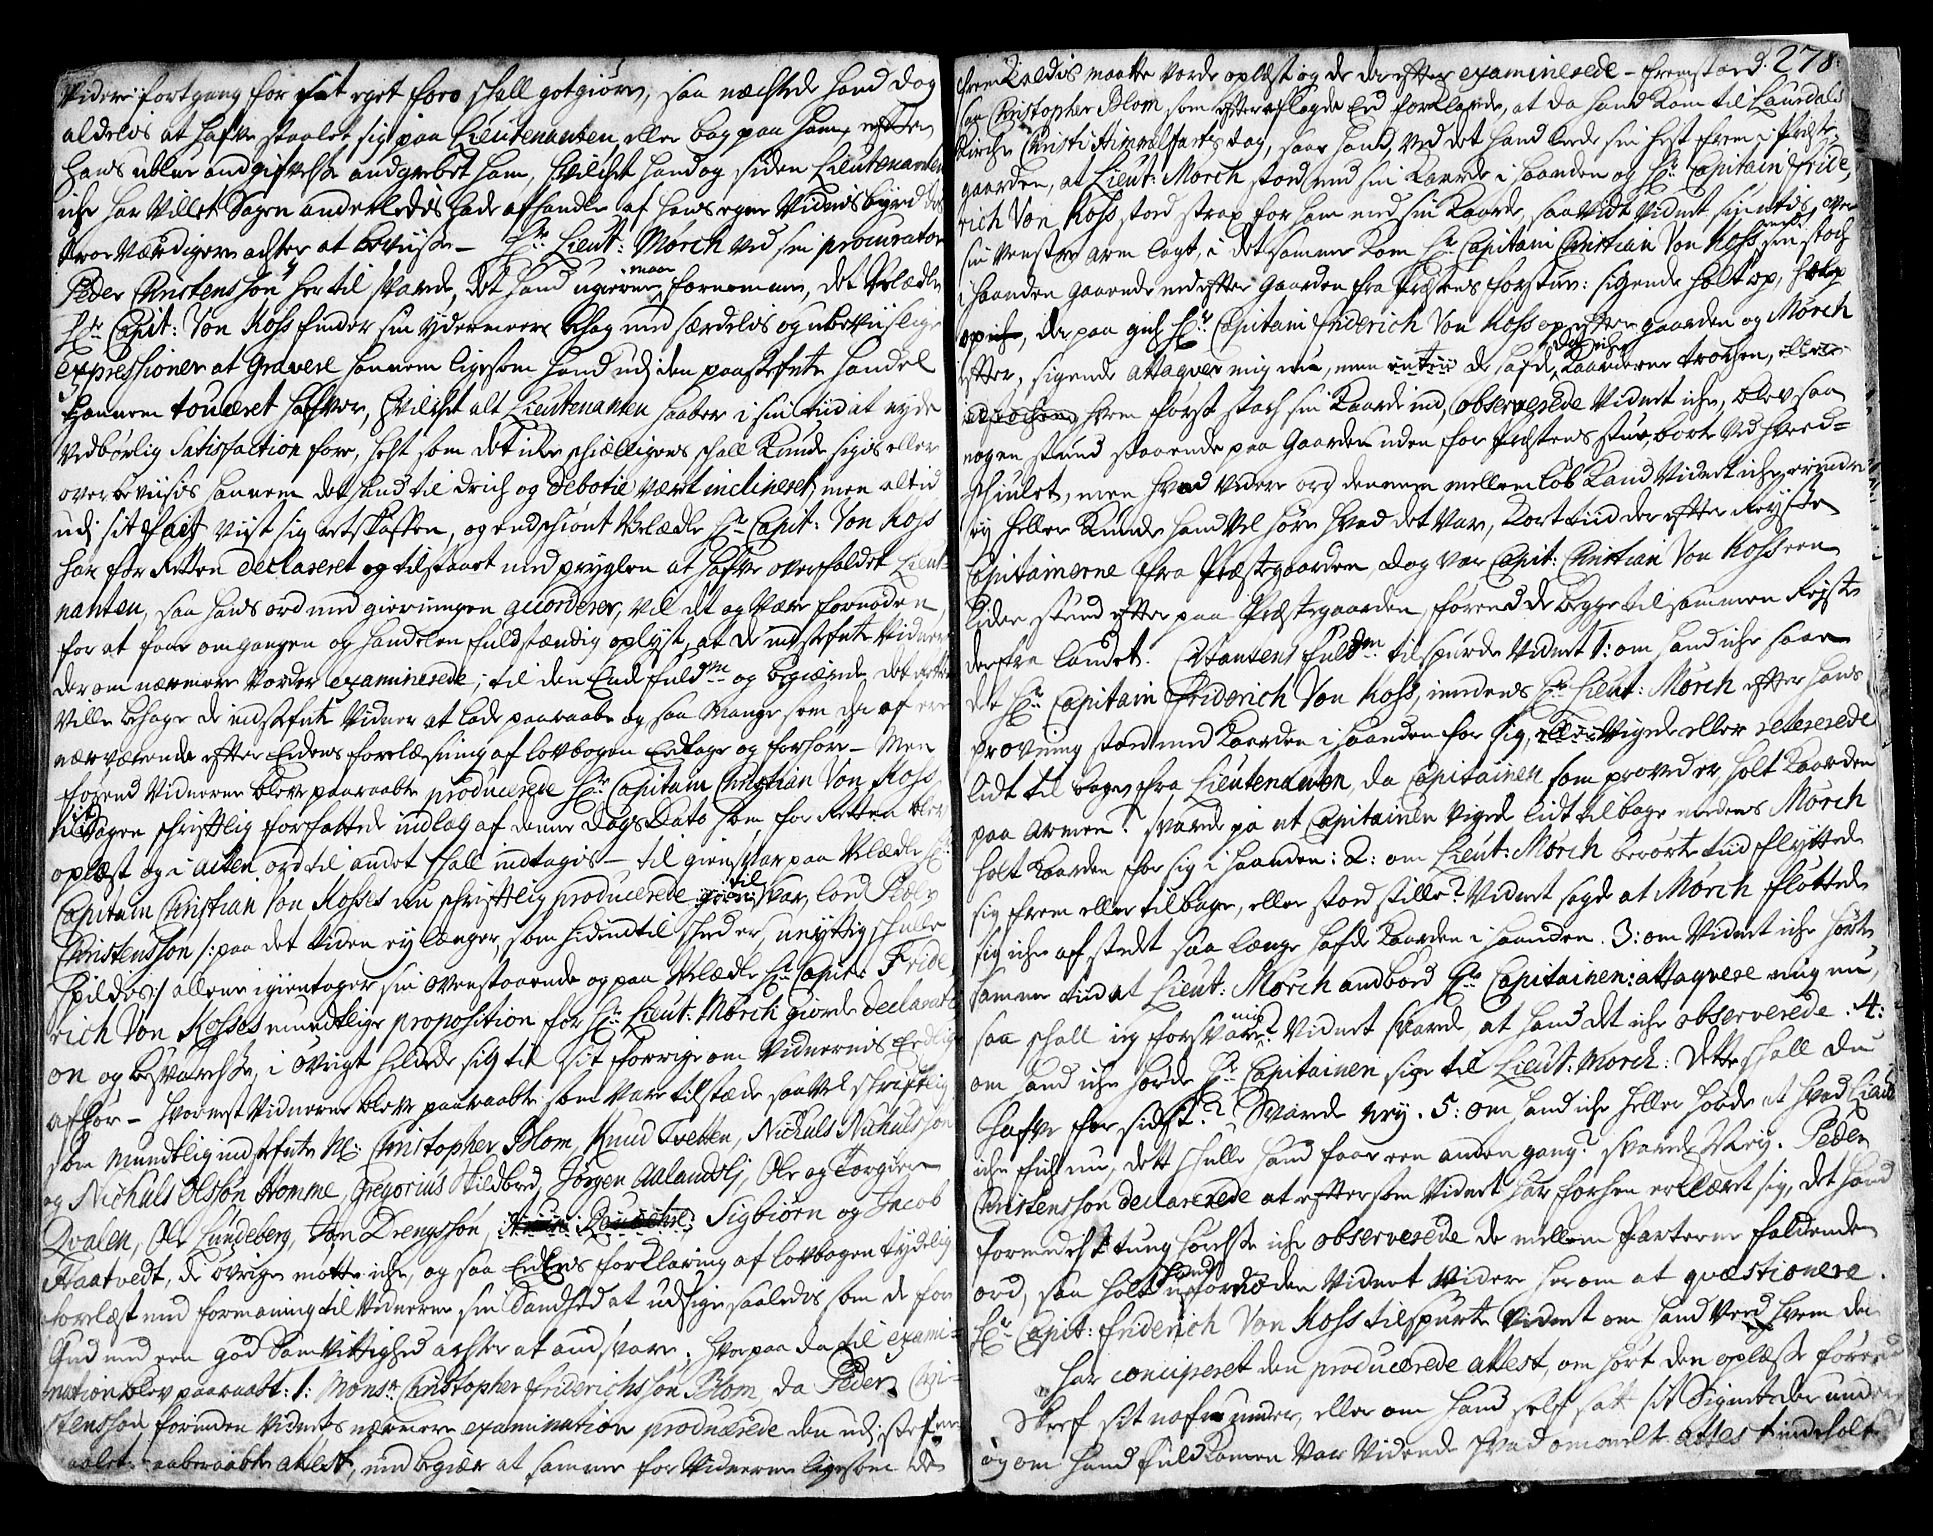 Videre fortgang for sit eget foro skall gotgiøre, saa nægtede hand dog
aldeles at hafve staalet sig paa Lieutenanten, eller bag paa ham, efter
hans udlæg andgifvelse andgrebet ham, hvilchet hand og siden Lieutenanten
iche har villet Sagen anderledis hade afhandle af hans egne Vidnisbyrd des
troeværdigere achter at beviise - Hr. Lieut: Mørch ved sin procurator
Peder Christenssøn her til svarede, det hand ugierne maae fornemme, det Velædle
Hr. Capit: Von Koss finder sin ydermeere behag med særdeles og ubeviislige
expressioner at gravere hannem ligesom hand udj den paastefnte handel
hannem touceret hafver, hvilchet alt Lieutenanten haaber i sin tiid at nyde
vedbørlig Satisfaction fore, helst som det iche skiælligens skall kunde sigis eller
overbeviisis hannem det hand til drich og debotie været inclineret, men altid
udj sit fait viist sig retskaffen, og endskiønt Velædle Hr. Capit: Von Koss
har for Retten declareret og tilstaaet med pryglen at hafve overfaldet Lieute
nanten, saa hans ord med gierningen accorderer, vil det og være fornøden,
for at faae omgangen og handelen fuldstændig oplyst, at de indstefnte Vidner
der om nærmere vorder examinerede; til den End fuldm. og begiærede, det retten
ville behage de indstefnte Vidner at lade paaraabe og saa mange som der af ere
nærværende efter Eedens forelæsning af lovbogen Edtage og forhøre - Men
førend Vidnerne blev paaraabte producerede Hr. Capitain Christian Von Koss
i Sagen skriftlig forfattede indlæg af denne Dags Dato som for Retten blev
oplæst og i acten ord til andet skall indtagis - til giensvar paa Velædle Hr.
Capitain Christian Von Kosses nu skriftlig producerede til svar, lod Peder
Christenssøn /: paa det tiden ey længer, som hidindtil skeed er, unyttig skulle
spildes :/ allene igientager sin ovenstaaende og paa Velædle Hr. Capit: Fride
rich Von Kosses mundtlige proposition for Hr. Lieut: Mørch giorde declarati
on og besvarelse, i øvrigt holdede sig til sit forrige om Vidnernis Eedlige
afhør - hvornest Vidnerne blev paaraabte som vare tilstæde saavel skriftlig
som mundtlig indstefnte N: Christopher Blom, Knud Tvetten, Nichuls Nichulssøn
og Nichuls Olssøn Homme, Gregorius Kildbod, Jørgen Aalandslj, Ole og Torgier
Qvalen, Ole Lundeberg, Jon Drengssøn, Sigbiørn og Jacob
Flaatvedt, de øvrige møtte iche, og saa Eedens forklaring af lovbogen tydelig
forelæst med formaning til Vidnerne sin Sandhed at udsige saaledis som de for
Gud med een god Samvittighed achter at andsvare; hvorpaa da til exami-
nation blev paaraabt: 1: Monsr. Christopher Friderichssøn Blom, da Peder Chri-
stenssøn forinden Vidnets nærmere examination producerede den udj stefne
maalet paaberaabte attest, med begiær at samme for Vidnerne ligesom de
278.
fremkaldis maatte vorde oplæst og de derefter examinerede - Fremstod
saa Christopher Blom, som efter aflagde Eed forklarede, at da hand kom til Laurdals
Kirche Christi Himmelfarts dag, saae hand, ved det hand leede sin hest frem i Præste-
gaarden, at Lieut: Mørch stod med sin Kaarde i haanden og Hr. Capitain Fride
rich Von Koss stod strax for ham med sin Kaarde, saavidt Vidnet synetis, over
sin venstre arm lagt, i det samme kom Hr. Capitain Christian Von Koss med sin stoch
i haanden gaaende nedefter gaarden fra Præstens forstue: sigende holt op, holt
op, der paa gich Hr. Capitain Friderich Von Koss op efter gaarden og Mørch
efter, sigende attaqver mig nu, men de hafde da iche Kaarderne trochen,
hvem først stach sin Kaarde ind, observerede Vidnet iche, blev saa
nogen stund staaende paa gaarden uden for Præstens stue, borte ved Sved=
skiulet, men hvad videre ord dennem mellem løb kand Vidnet iche erindre
ey heller kunde hand vel høre hvad det var, kort tiid der efter Reyste
Capitainerne fra Præstegaarden, dog var Capit: Christian Von Koss een
liden stund efter paa Præstegaarden, førend de begge tilsammen Reyste
derfra landet. Citantens fuldm. tilspurde Vidnet 1: om hand iche saae
det Hr. Capitain Friderich Von Koss, imedens Hr. Lieut: Mørch efter hans
prøvning stod med Kaarden i haanden for sig, vigede eller retererede
lidt tilbage, fra Lieutenanten, da Capitainen som prøved er, holt Kaarden
paa armen? Svarede ja at Capitainen vigede lidt tilbage medens Mørch
holt Kaarden for sig i haanden: 2: om Lieut: Mørch berørte tiid flyttede
sig frem eller tilbage, eller stod stille? Vidnet sagde at Mørch fløttede
sig iche af stedet saa længe hafde Kaarden i haanden. 3: om Vidnet iche hørte
samme tiid at Lieut: Mørch andbød Hr. Capitainen: attaqvere mig nu,
saa skall ieg forsvare mig? Vidnet svarede, at hand det iche observerede. 4:
om hand iche hørde Hr. Capitainen sige til Lieut: Mørch: Dette skall du
hafve for sidst? Svarede Ney. 5: om hand iche heller hørde at hvad Lieut:
iche fich nu, dett skulle hand faae een anden gang? svarede Ney. Peder
Christenssøn declarerede at eftersom Vidnet har forhen erklært sig, det hand
formedelst tung hørelse iche observerede de mellem Parterne faldende
ord, saa holt hand ufornøden Vidnet videre herom at qvæstionere.
Hr. Capit: Friderich Von Koss tilspurte Vidnet om hand veed hvem der
har conciperet den producerede attest, om hørt den oplæse førend
Skref sit nafn under, eller om hand self satt sit Signet der under
og om hand fuldkommen var vidende hvad ommelt attest indeholt